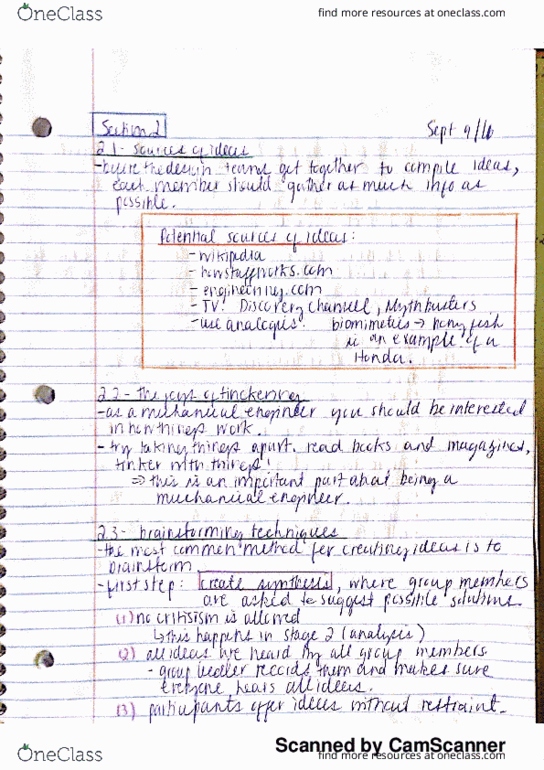 OneClass
find more resources at oneclass.com
Section 2
Sept 9/16
2.1 - sources of ideas
- before the design teams get together to compile ideas,
each member should gather as much info as
possible.
Potential sources of ideas:
- wikipedia
- howstuffworks.com
- engineering.com
- TV: Discovery Channel, Mythbusters
- use analogies: biomimetics → fish
is an example of a
Honda.
2.2 - the joys of tinckering
- as a mechanical engineer you should be interested
in how things work.
- try taking things apart, read books and magazines,
tinker with things!
⇒ this is an important part about being a
muchanical engineer.
2.3 - brainstorming techniques
- the most common method for creating ideas is to
brainstorm
- first step: create synthesis, where group members
are asked to suggest possible solutions.
(1) no critisism is allowed
↳ this happens in stage 2 (analysis)
(2) all ideas are heard by all group members
- group leader records them and makes sure
everyone hears all ideas.
(3) participants offer ideas without restraint.
Scanned by CamScanner
OneClass
find more resources at oneclass.com